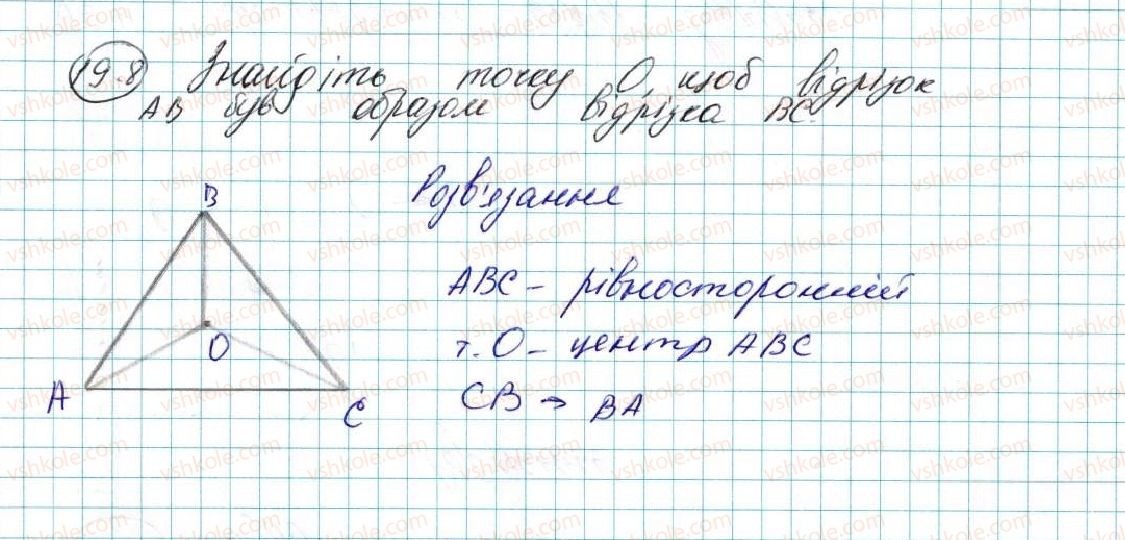 19.8 Знайдіть точку О, щоб відрізок
АВ був образом відрізка ВС.
Розв'язання
В
АВС – рівносторонній
т. О – центр АВС
О
А
С
СВ → ВА